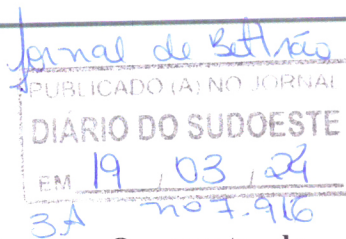 Jornal de Beltrão
PUBLICADO (A) NO JORNAL
DIÁRIO DO SUDOESTE
EM 19 / 03 / 24
3A nº 7.916